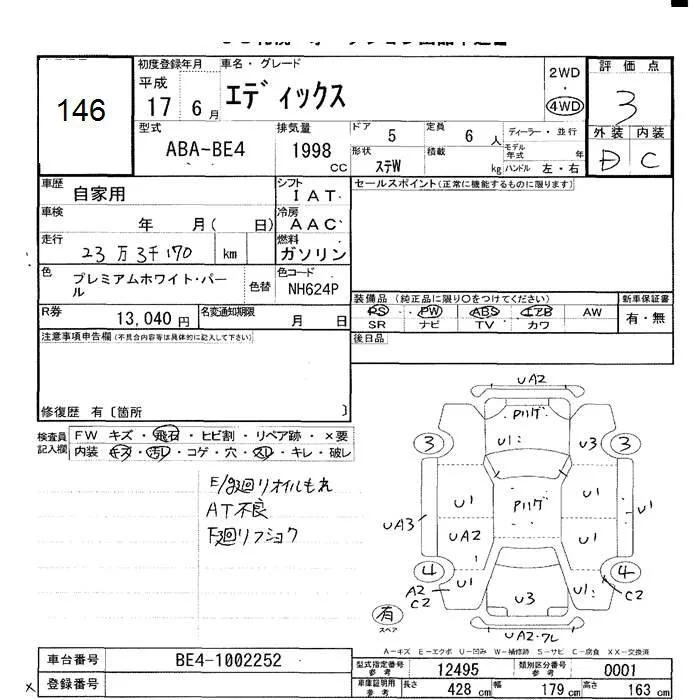 146
初度登録年月
平成
17 6月
車名・グレード
エディックス
2WD
・
4WD
評価点
3
外装 内装
D C
型式
ABA-BE4
排気量
1998 CC
ドア 5
定員 6人
ディーラー・並行
形状 ステW
積載 kg
モデル年式 年
ハンドル 左・右
車歴 自家用
シフト I AT
車検 年 月( 日)
冷房 A AC
走行 23万3千170 km
燃料 ガソリン
色 プレミアムホワイト・パール
色替
色コード NH624P
R券 13,040円
名変通知期限 月 日
セールスポイント(正常に機能するものに限ります)
装備品(純正品に限り○をつけてください)
新車保証書
PS PW ABS エアB AW
SR ナビ TV カワ
有・無
後日品
注意事項申告欄(不具合内容等は具体的に記入して下さい)
修復歴 有〔箇所 〕
検査員記入欄
FW キズ・飛石・ヒビ割・リペア跡・×要
内装 キズ・汚レ・コゲ・穴・スレ・キレ・破レ
AT不良
UA2
U1
3
U3
3
U1
U1
U1
UA3
UA2
U1
4
4
A2
C2
U1
U3
U1
C2
有
スペア
UA2・ワレ
A-キズ E-エクボ U-凹み W-補修跡 S-サビ C-腐食 XX-交換済
車台番号 BE4-1002252
登録番号
型式指定番号 参考 12495
類別区分番号 参考 0001
車庫証明用 参考 長さ 428 cm 幅 179 cm 高さ 163 cm